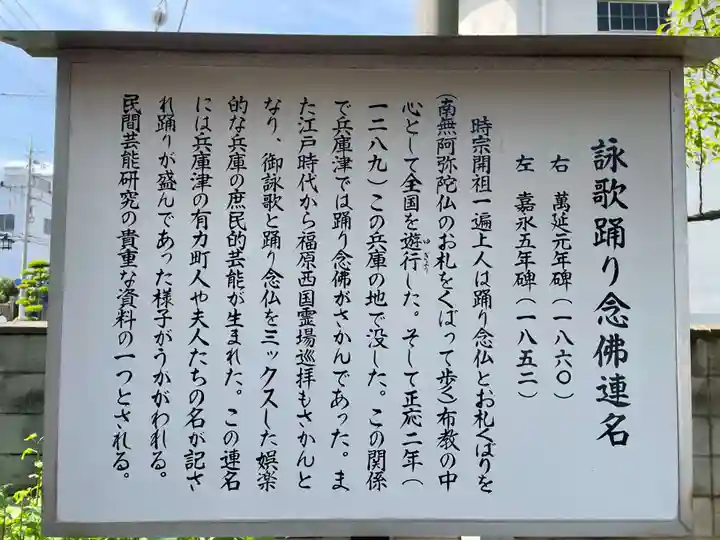 詠歌踊り念佛連名
右 萬延元年碑(一八六〇)
左 嘉永五年碑(一八五二)
時宗開祖一遍上人は踊り念仏とお札くばりを
(南無阿弥陀仏のお札をくばって歩く布教の中
心として全国を遊行した。そして正応二年(
ゆぎょう
一二八九)この兵庫の地で没した。この関係
で兵庫津では踊り念佛がさかんであった。ま
た江戸時代から福原西国霊場巡拝もさかんと
なり、御詠歌と踊り念仏をミックスした娯楽
的な兵庫の庶民的芸能が生まれた。この連名
には兵庫津の有力町人や夫人たちの名が記さ
れ踊りが盛んであった様子がうががわれる。
民間芸能研究の貴重な資料の一つとされる。